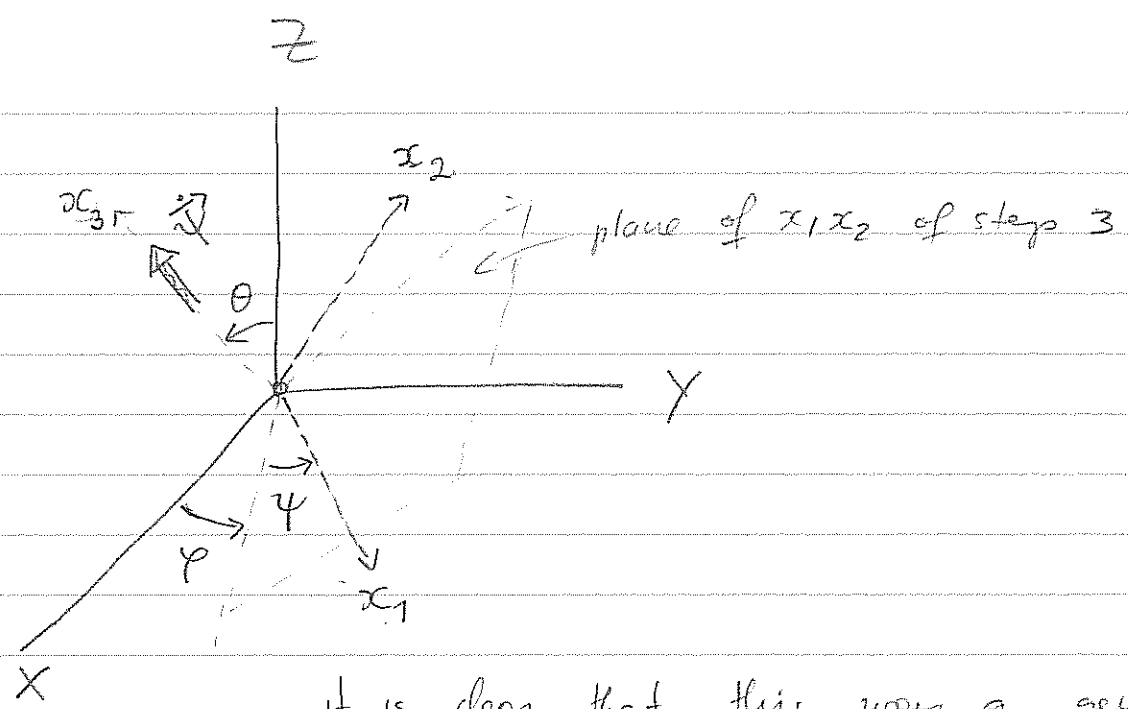 Z
x2
x3
plane of x1x2 of step 3
θ
Y
ψ
φ
x1
X
it is clear that this